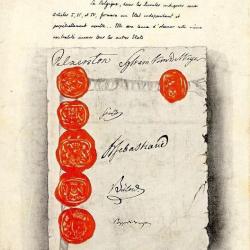 La Belgique, dans les limites indiquées aux
articles I, II, et IV, formera un Etat indépendant et
perpétuellement neutre. Elle sera tenue d'observer cette même
neutralité envers tous les autres Etats
Palmerston Sylvain Van de Weyer
H Sebastiani
Bülow